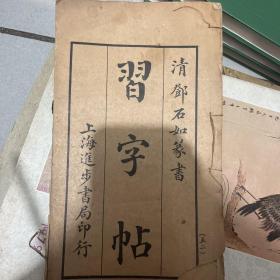 清鄧石如篆書
（五二）
習字帖
上海進步書局印行